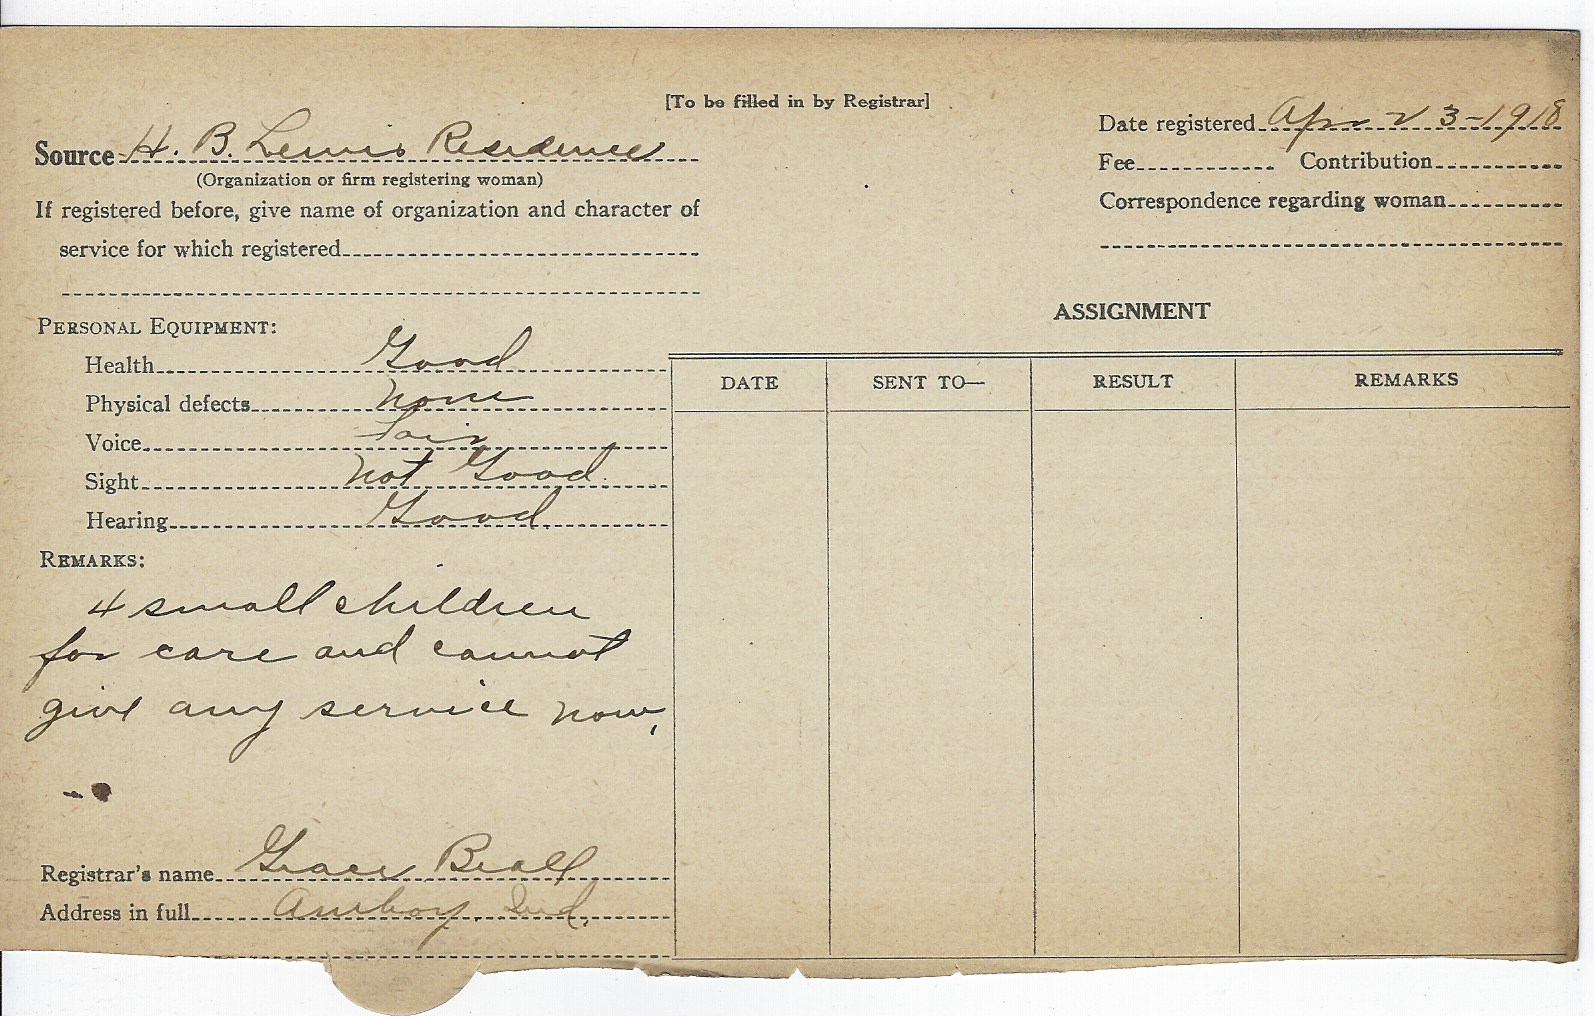 [To be filled in by Registrar]
Source H. B. Lewis Residence
(Organization or firm registering woman)
If registered before, give name of organization and character of
service for which registered
PERSONAL EQUIPMENT:
Health Good
Physical defects None
Voice Fair
Sight Not Good.
Hearing Good.
REMARKS:
4 small children
for care and cannot
give any service now.
Registrar's name Grace Beall
Address in full Amboy, Ind.
Date registered Apr 23-1918
Fee Contribution
Correspondence regarding woman
ASSIGNMENT
DATE SENT TO— RESULT REMARKS